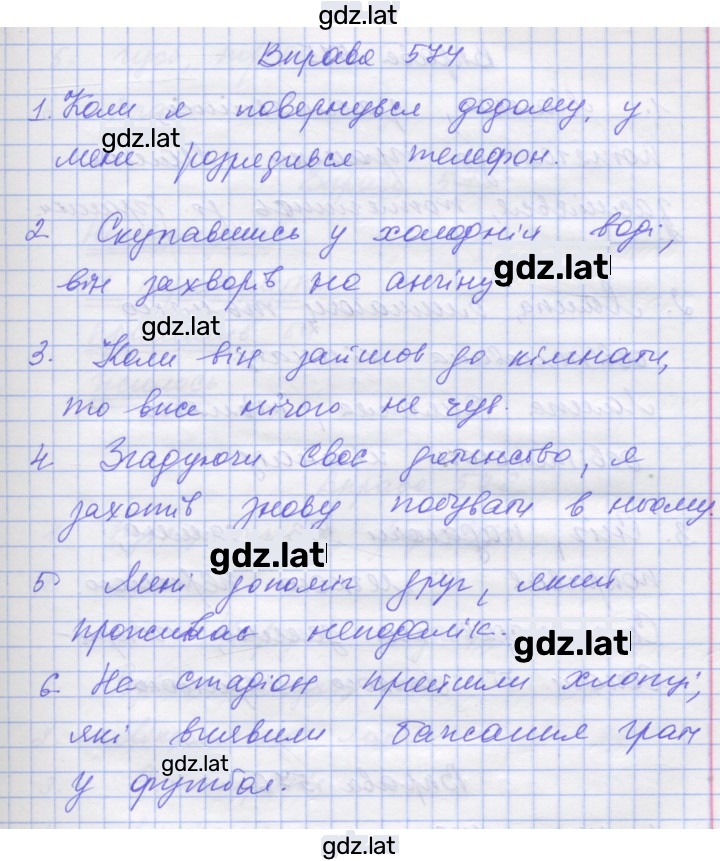 gdz.lat
Вправа 574
1. Коли я повернувся додому, у
gdz.lat
мене розрядився телефон.
2 Скупавшись у холодній воді,
він захворів на ангіну
gdz.lat
gdz.lat
3. Коли він зайшов до кімнати,
то вже нічого не чув.
4. Згадуючи своє дитинство, я
захотів знову побувати в ньому.
gdz.lat
5 Мені допоміг друг, який
проживає неподалік.
gdz.lat
6. На стадіон прийшли хлопці,
які виявили бажання грати
gdz.lat
у футбол.
gdz.lat